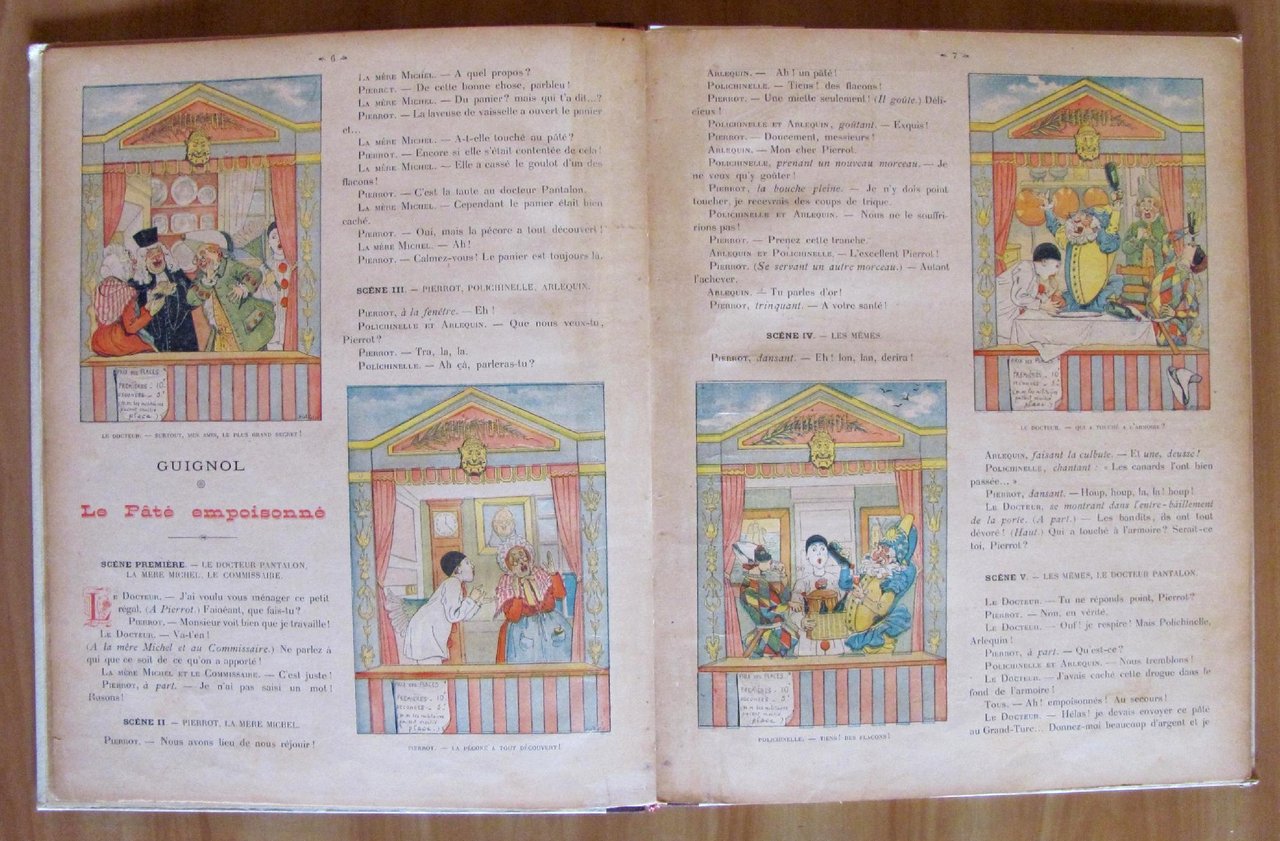 6
PRIX DES PLACES
PREMIÈRES - 10
SECONDES - 5
(MM les militaires
paient moitié
place.)
LE DOCTEUR. — SURTOUT, MES AMIS, LE PLUS GRAND SECRET !
GUIGNOL
Le Pâté empoisonné
SCÈNE PREMIÈRE. — LE DOCTEUR PANTALON,
LA MÈRE MICHEL, LE COMMISSAIRE.
LE DOCTEUR. — J'ai voulu vous ménager ce petit
régal. (A Pierrot.) Fainéant, que fais-tu?
PIERROT. — Monsieur voit bien que je travaille!
LE DOCTEUR. — Va-t'en!
(A la mère Michel et au Commissaire.) Ne parlez à
qui que ce soit de ce qu'on a apporté!
LA MÈRE MICHEL ET LE COMMISSAIRE. — C'est juste!
PIERROT, à part. — Je n'ai pas saisi un mot!
Rusons!
SCÈNE II — PIERROT, LA MÈRE MICHEL.
PIERROT. — Nous avons lieu de nous réjouir!
LA MÈRE MICHEL. — A quel propos?
PIERROT. — De cette bonne chose, parbleu!
LA MÈRE MICHEL. — Du panier? mais qui t'a dit...?
PIERROT. — La laveuse de vaisselle a ouvert le panier
et...
LA MÈRE MICHEL. — A-t-elle touché au pâté?
PIERROT. — Encore si elle s'était contentée de cela!
LA MÈRE MICHEL. — Elle a cassé le goulot d'un des
flacons!
PIERROT. — C'est la faute au docteur Pantalon.
LA MÈRE MICHEL. — Cependant le panier était bien
caché.
PIERROT. — Oui, mais la pécore a tout découvert!
LA MÈRE MICHEL. — Ah!
PIERROT. — Calmez-vous! Le panier est toujours là.
SCÈNE III. — PIERROT, POLICHINELLE, ARLEQUIN.
PIERROT, à la fenêtre. — Eh!
POLICHINELLE ET ARLEQUIN. — Que nous veux-tu,
Pierrot?
PIERROT. — Tra, la, la.
POLICHINELLE. — Ah çà, parleras-tu?
PRIX DES PLACES
PREMIÈRES - 10
SECONDES - 5
(MM les militaires
paient moitié
place.)
PIERROT. — LA PÉCORE A TOUT DÉCOUVERT!
7
ARLEQUIN. — Ah! un pâté!
POLICHINELLE. — Tiens! des flacons!
PIERROT. — Une miette seulement! (Il goûte.) Déli-
cieux!
POLICHINELLE ET ARLEQUIN, goûtant. — Exquis!
PIERROT. — Doucement, messieurs!
ARLEQUIN. — Mon cher Pierrot.
POLICHINELLE, prenant un nouveau morceau. — Je
ne veux qu'y goûter!
PIERROT, la bouche pleine. — Je n'y dois point
toucher, je recevrais des coups de trique.
POLICHINELLE ET ARLEQUIN. — Nous ne le souffri-
rions pas!
PIERROT. — Prenez cette tranche.
ARLEQUIN ET POLICHINELLE. — L'excellent Pierrot!
PIERROT. (Se servant un autre morceau.) — Autant
l'achever.
ARLEQUIN. — Tu parles d'or!
PIERROT, trinquant. — A votre santé!
SCÈNE IV. — LES MÊMES.
PIERROT, dansant. — Eh! lon, lan, derira!
PRIX DES PLACES
PREMIÈRES - 10
SECONDES - 5
(MM les militaires
paient moitié
place.)
POLICHINELLE. — TIENS! DES FLACONS!
PRIX DES PLACES
PREMIÈRES - 10
SECONDES - 5
(MM les militaires
paient moitié
place.)
LE DOCTEUR. — QUI A TOUCHÉ A L'ARMOIRE?
ARLEQUIN, faisant la culbute. — Et une, deusse!
POLICHINELLE, chantant : « Les canards l'ont bien
passée... »
PIERROT, dansant. — Houp, houp, la, la! houp!
LE DOCTEUR, se montrant dans l'entre-bâillement
de la porte. (A part.) — Les bandits, ils ont tout
dévoré! (Haut.) Qui a touché à l'armoire? Serait-ce
toi, Pierrot?
SCÈNE V. — LES MÊMES, LE DOCTEUR PANTALON.
LE DOCTEUR. — Tu ne réponds point, Pierrot?
PIERROT. — Non, en vérité.
LE DOCTEUR. — Ouf! je respire! Mais Polichinelle,
Arlequin!
PIERROT, à part. — Qu'est-ce?
POLICHINELLE ET ARLEQUIN. — Nous tremblons!
LE DOCTEUR. — J'avais caché cette drogue dans le
fond de l'armoire!
TOUS. — Ah! empoisonnés! Au secours!
LE DOCTEUR. — Hélas! je devais envoyer ce pâté
au Grand-Turc... Donnez-moi beaucoup d'argent et je